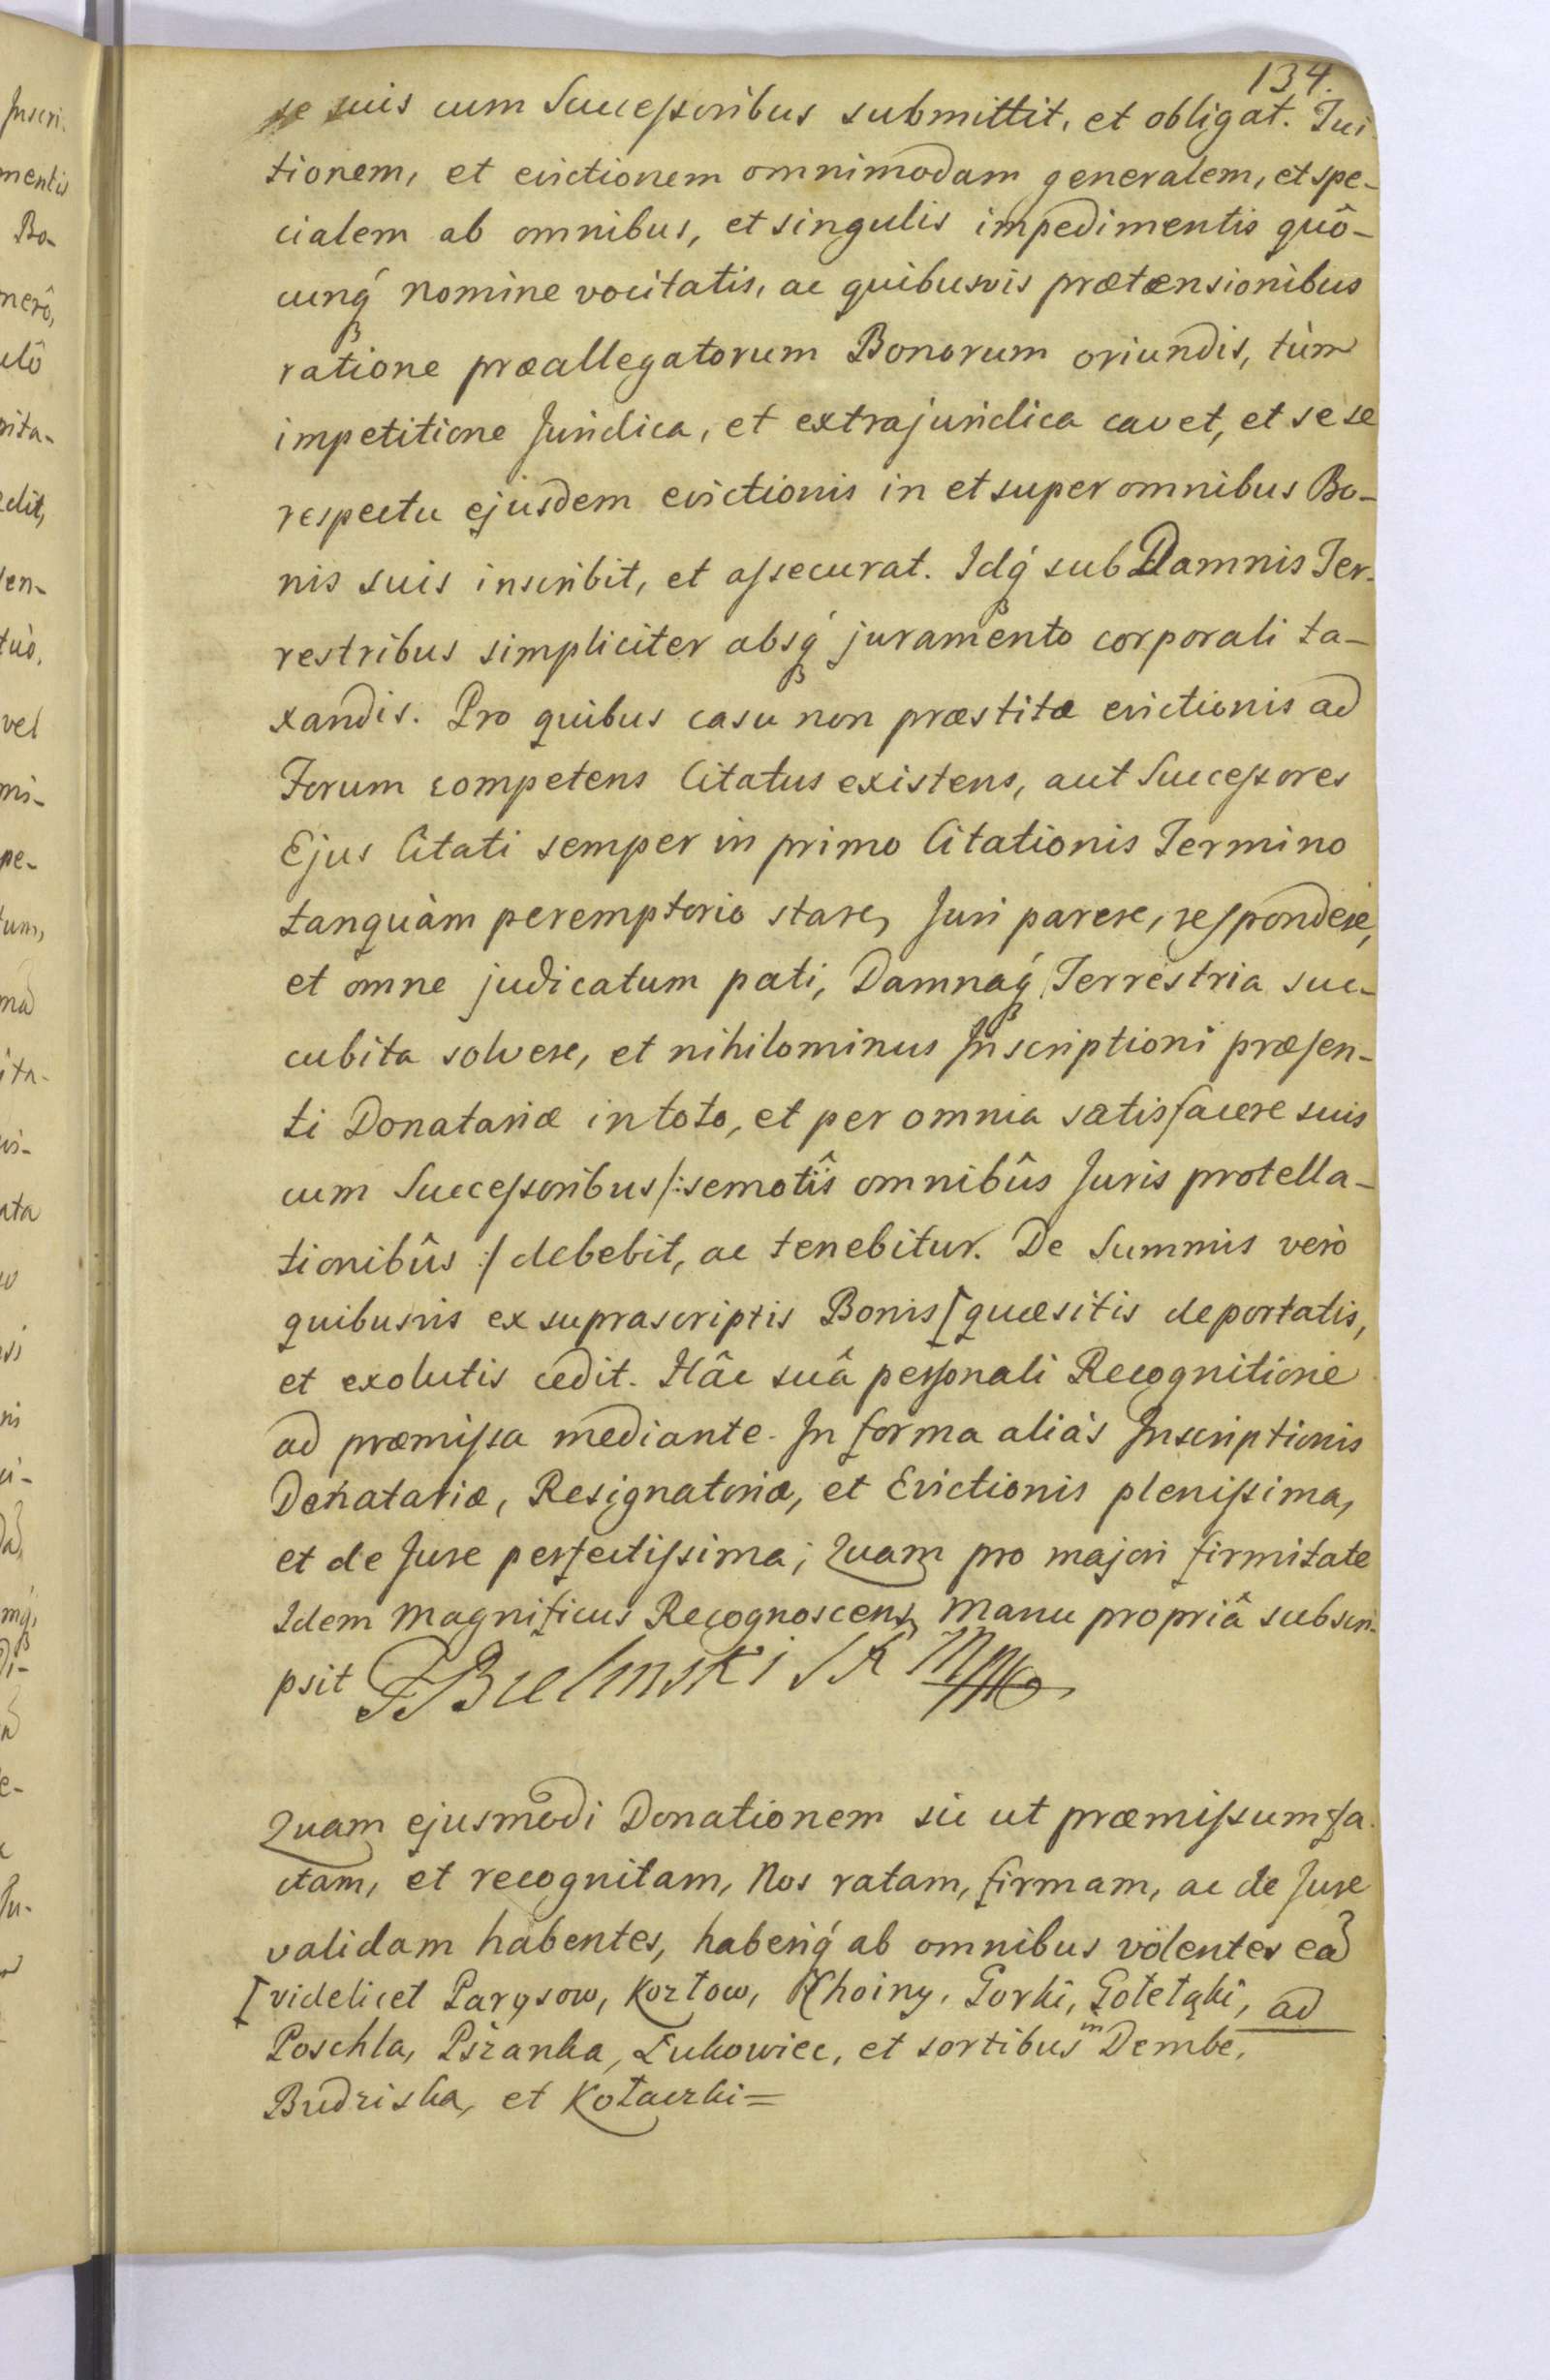 134.
se suis cum Successoribus submittit, et obligat. Tui-
tionem, et evictionem omnimodam generalem, et spe-
cialem ab omnibus, et singulis impedimentis quô-
cunq́ nomine vocitatis, ac quibusvis prætænsionibus
ratione præallegatorum Bonorum oriundis, tùm
impetitione Juridica, et extrajuridica cavet, et se se
respectu ejusdem evictionis in et super omnibus Bo-
nis suis inscribit, et assecurat. Idq́ sub Damnis Ter-
restribus simpliciter absq́ juramento corporali ta-
xandis. Pro quibus casu non præstitæ evictionis ad
Forum competens Citatus existens, aut Successores
Ejus Citati semper in primo Citationis Termino
tanquàm peremptorio stare, Juri parere, respondere,
et omne judicatum pati, Damnaq́ Terrestria suc-
cubita solvere, et nihilominus Inscriptioni præsen-
ti Donatariæ in toto, et per omnia satisfacere suis
cum Successoribus /: semotîs omnibûs Juris protella-
tionibûs :/ debebit, ac tenebitur. De Summis verò
quibusvis ex suprascriptis Bonis [ quæsitis deportatis,
et exolutis cedit. Hâc suâ personali Recognitione
ad præmissa mediante. In forma aliàs Inscriptionis
Donatariæ, Resignatoriæ, et Evictionis plenissima,
et de Jure perfectissima; Quam pro majori firmitate
Idem Magnificus Recognoscens Manu propriâ subscri-
psit FBielinski SK Mpp
Quam ejusmodi Donationem sic ut præmissum fa-
ctam, et recognitam, Nos ratam, firmam, ac de Jure
validam habentes, haberiq́ ab omnibus volentes ead
[ videlicet Parysow, Kozłow, Choiny, Gorki, Gołełąki, ad
Poschla, Pszanka, Łukowiec, et sortibus in Dembe,
Budziska, et Kołaczki =